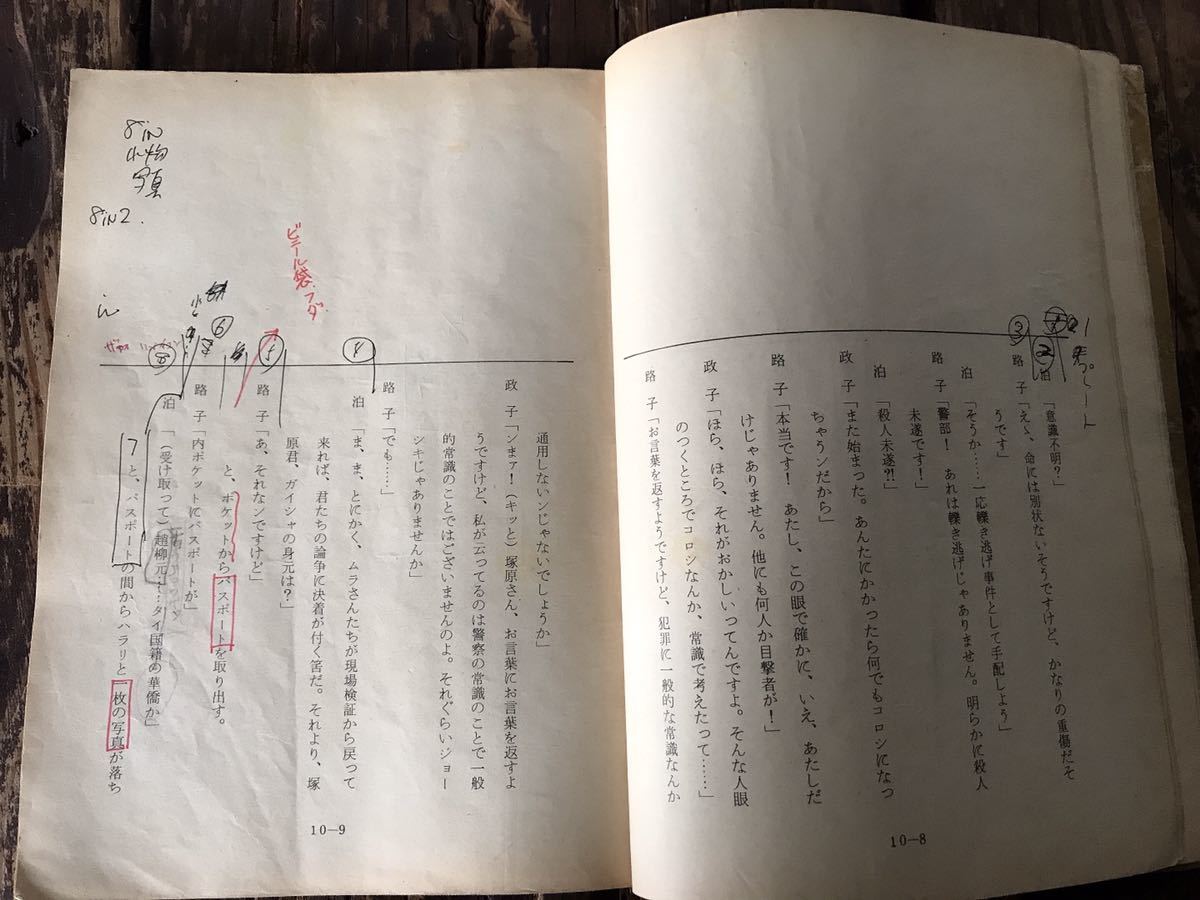 泊「意識不明?」
路子「えゝ、命には別状ないそうですけど、かなりの重傷だそ
うです」
泊「そうか……一応轢き逃げ事件として手配しよう」
路子「警部! あれは轢き逃げじゃありません。明らかに殺人
未遂です!」
泊「殺人未遂?!」
政子「また始まった。あんたにかかったら何でもコロシになっ
ちゃうンだから」
路子「本当です! あたし、この眼で確かに、いえ、あたしだ
けじゃありません。他にも何人か目撃者が!」
政子「ほら、ほら、それがおかしいってんですよ。そんな人眼
のつくところでコロシなんか、常識で考えたって……」
路子「お言葉を返すようですけど、犯罪に一般的な常識なんか
10—8
③
②
通用しないンじゃないでしょうか」
政子「ンまァ!(キッと)塚原さん、お言葉にお言葉を返すよ
うですけど、私が云ってるのは警察の常識のことで一般
的常識のことではございませんのよ。それぐらいジョー
シキじゃありませんか」
路子「でも……」
泊「ま、ま、とにかく、ムラさんたちが現場検証から戻って
来れば、君たちの論争に決着が付く筈だ。それより、塚
原君、ガイシャの身元は?」
路子「あ、それなンですけど」
と、ポケットからパスポートを取り出す。
路子「内ポケットにパスポートが」
泊「(受け取って)趙柳元……タイ国籍の華僑か」
と、パスポートの間からハラリと一枚の写真が落ち
10—9
④
⑤
⑥
7
⑧
ビニール袋、フダ
8 iN
小物
写真
8 iN 2.